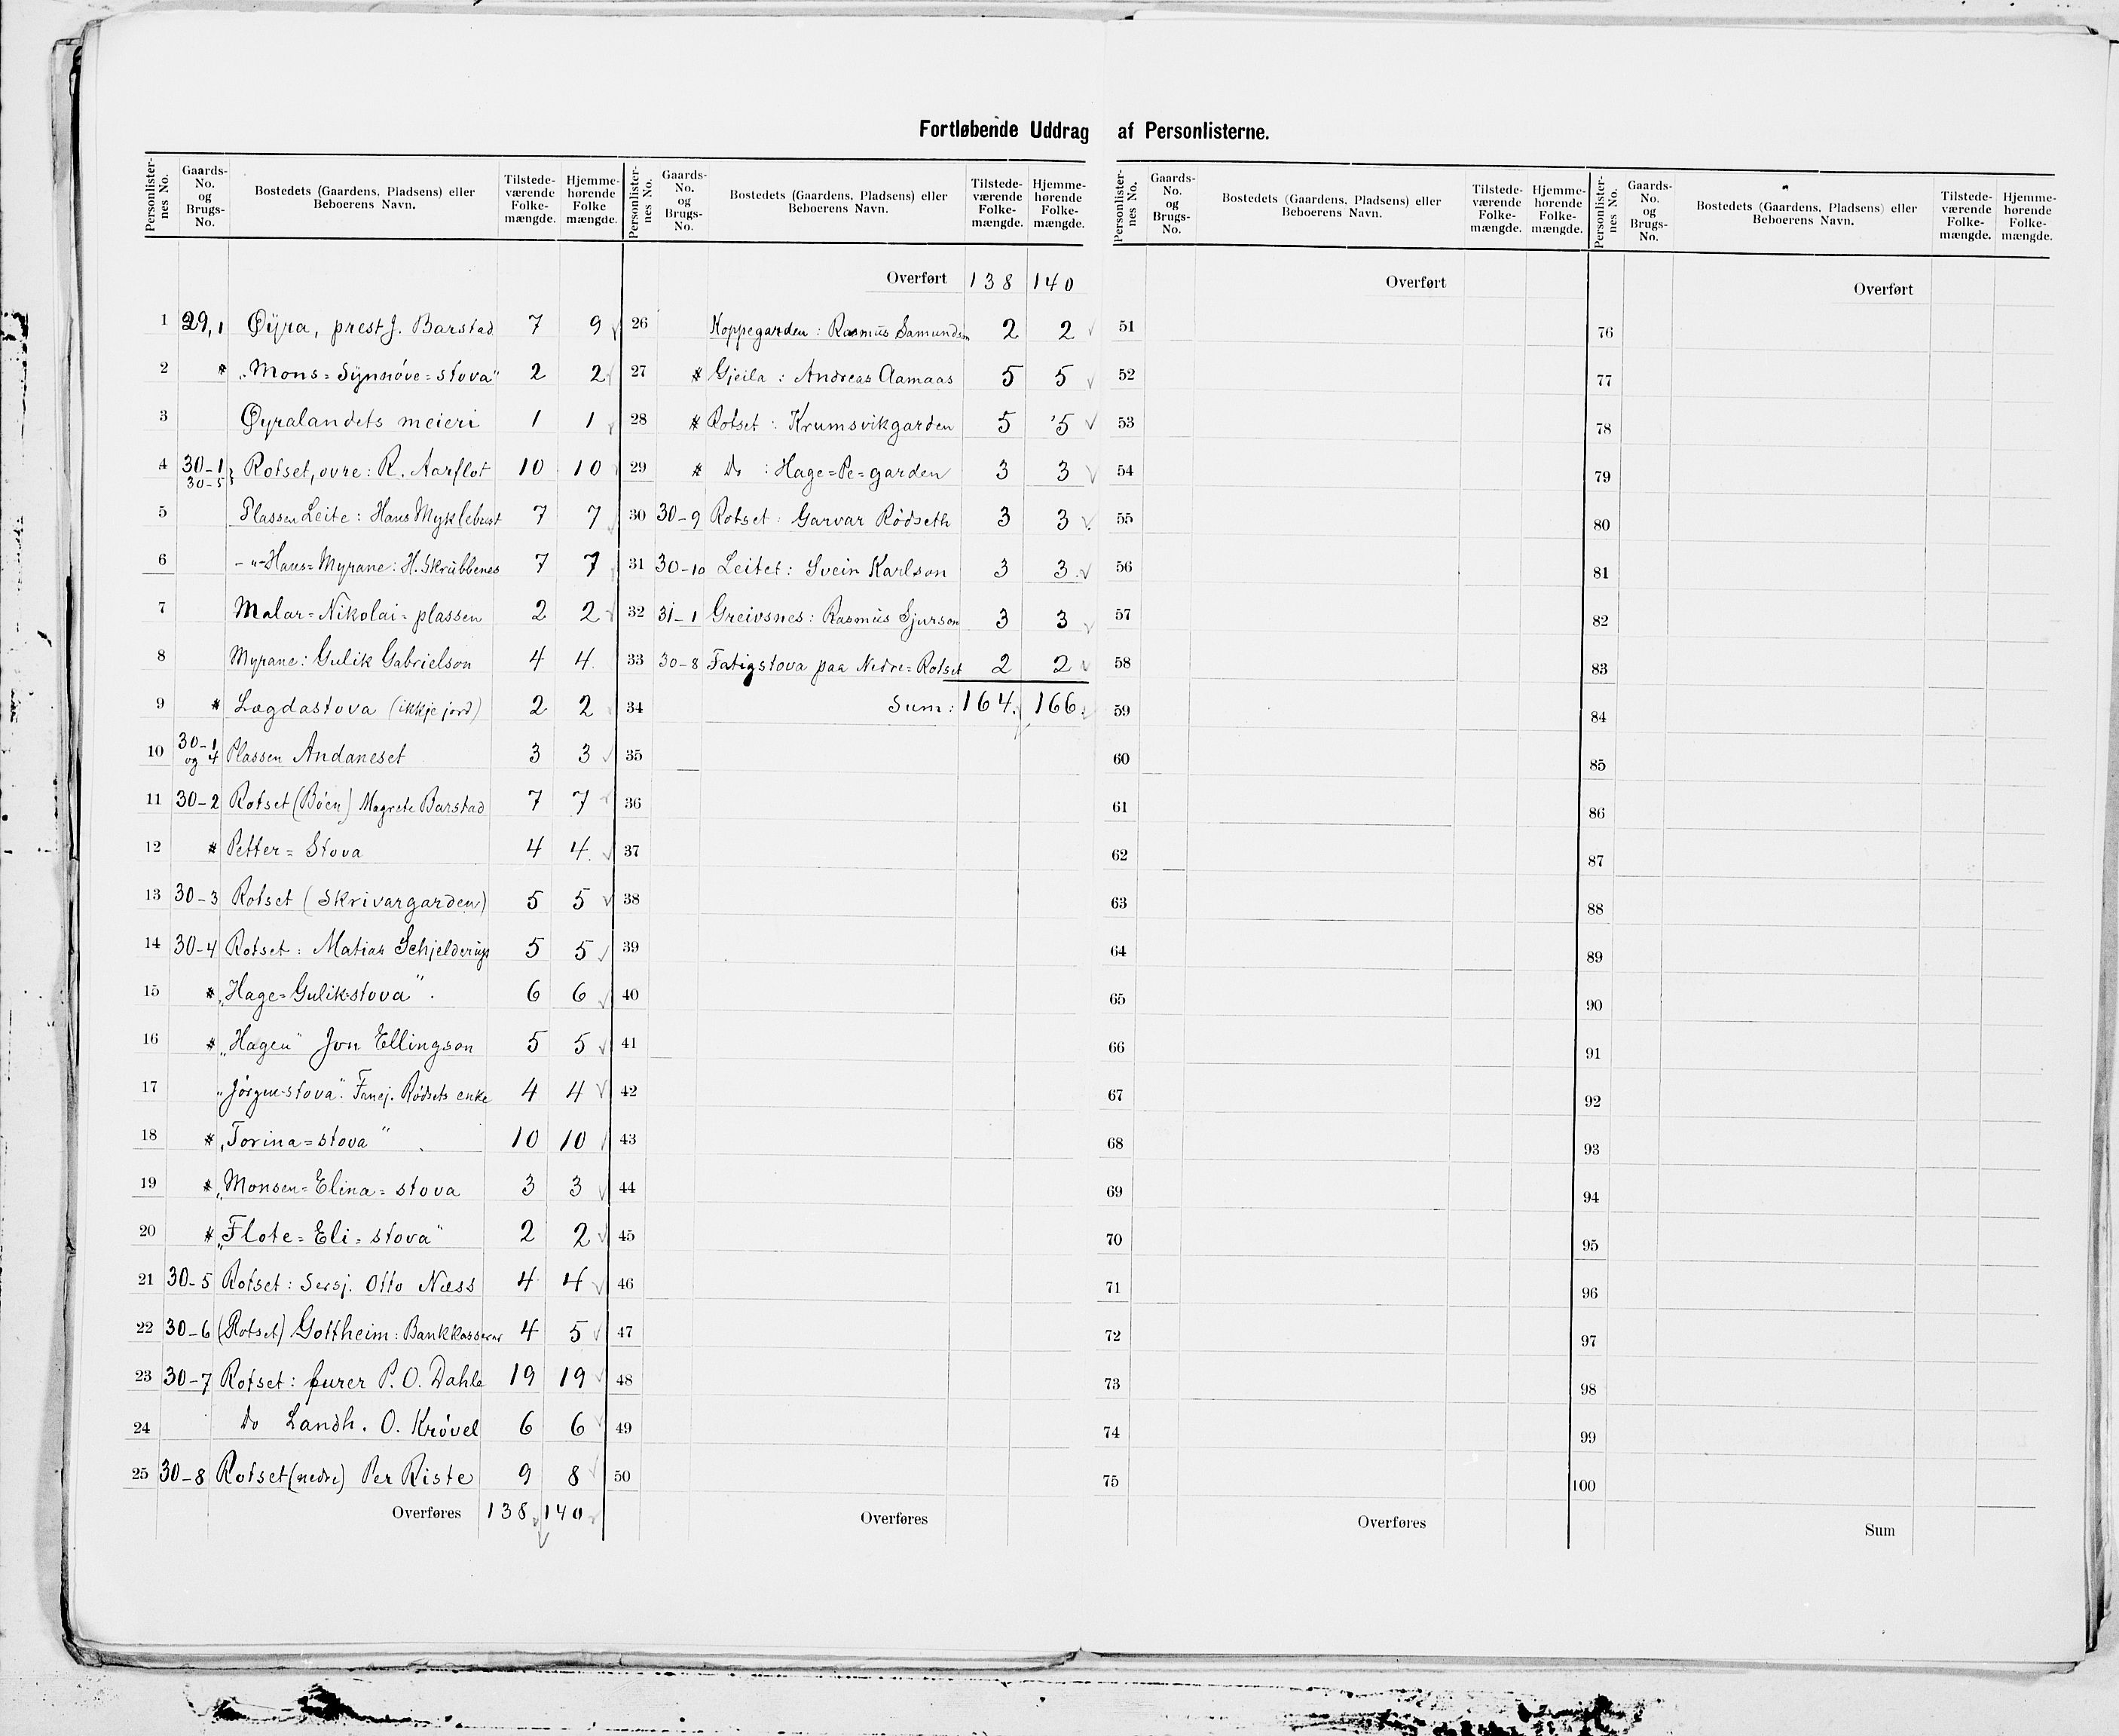 Fortløbende Uddrag af Personlisterne.
Personlisternes No. Gaards-No. og Brugs-No. Bostedets (Gaardens, Pladsens) eller Beboerens Navn. Tilstedeværende Folkemængde. Hjemmehørende Folkemængde.
1 29,1 Øyra, prest J. Barstad 7 9
2 * „Mons=Synnöve=stova" 2 2
3 Øyralandets meieri 1 1
4 30-1, 30-5 Rotset, øvre: R. Aarflot 10 10
5 Plassen Leite: Hans Myklebust 7 7
6 -"- Haus=Myrane: H. Skrubbenes 7 7
7 Malar=Nikolai=plassen 2 2
8 Myrane: Gulik Gabrielson 4 4
9 * Lægdastova (ikkje jord) 2 2
10 30-1 og 4 Plassen Andaneset 3 3
11 30-2 Rotset (Böen) Magrete Barstad 7 7
12 * Petter=Stova 4 4
13 30-3 Rotset (Skrivargarden) 5 5
14 30-4 Rotset: Matias Schjelderup 5 5
15 * „Hage=Gulik-stova" 6 6
16 * „Hagen" Jon Ellingson 5 5
17 „Jörgen-stova". Rödsets enke 4 4
18 * „Torina=stova" 10 10
19 * „Monsen=Elina=stova 3 3
20 * „Flote=Eli=stova" 2 2
21 30-5 Rotset: Sersj. Otto Næss 4 4
22 30-6 (Rotset) Gottheim: Bankkasserar 4 5
23 30-7 Rotset: furer P. O. Dahle 19 19
24 Do Landh. O. Krövel 6 6
25 30-8 Rotset (nedre) Per Riste 9 8
Overføres 138 140
Personlisternes No. Gaards-No. og Brugs-No. Bostedets (Gaardens, Pladsens) eller Beboerens Navn. Tilstedeværende Folkemængde. Hjemmehørende Folkemængde.
Overført 138 140
26 Koppegarden: Rasmus Samundson 2 2
27 * Gjeila: Andreas Aamaas 5 5
28 * Rotset: Krumsvikgarden 5 5
29 * Do: Hage=Pe=garden 3 3
30 30-9 Rotset: Garvar Rödseth 3 3
31 30-10 Leitet: Svein Karlson 3 3
32 31-1 Greivsnes: Rasmus Sjurson 3 3
33 30-8 Fatigstova paa Nedre=Rotset 2 2
34 Sum: 164 166
35
36
37
38
39
40
41
42
43
44
45
46
47
48
49
50
Overføres
Personlisternes No. Gaards-No. og Brugs-No. Bostedets (Gaardens, Pladsens) eller Beboerens Navn. Tilstedeværende Folkemængde. Hjemmehørende Folkemængde.
Overført
51
52
53
54
55
56
57
58
59
60
61
62
63
64
65
66
67
68
69
70
71
72
73
74
75
Overføres
Personlisternes No. Gaards-No. og Brugs-No. Bostedets (Gaardens, Pladsens) eller Beboerens Navn. Tilstedeværende Folkemængde. Hjemmehørende Folkemængde.
Overført
76
77
78
79
80
81
82
83
84
85
86
87
88
89
90
91
92
93
94
95
96
97
98
99
100
Sum